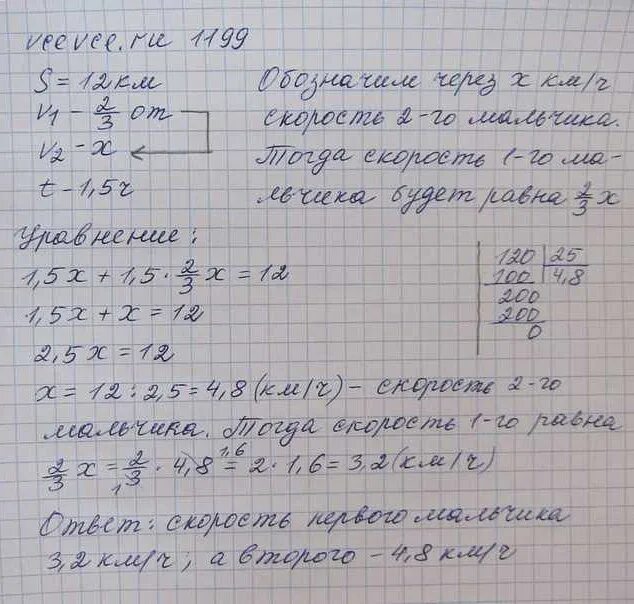 veevee.ru 1199
S = 12 км
V1 – 2/3 от
V2 – x
t – 1,5 ч
Обозначим через x км/ч
скорость 2-го мальчика.
Тогда скорость 1-го ма-
льчика будет равна 2/3 x
Уравнение:
1,5x + 1,5 · 2/3 x = 12
1,5x + x = 12
2,5x = 12
120 | 25
100 | 4,8
200
200
0
x = 12 : 2,5 = 4,8 (км/ч) – скорость 2-го
мальчика. Тогда скорость 1-го равна
2/3 x = 2/3 · 4,8 = 2 · 1,6 = 3,2 (км/ч)
1 1,6
Ответ: скорость первого мальчика
3,2 км/ч, а второго – 4,8 км/ч